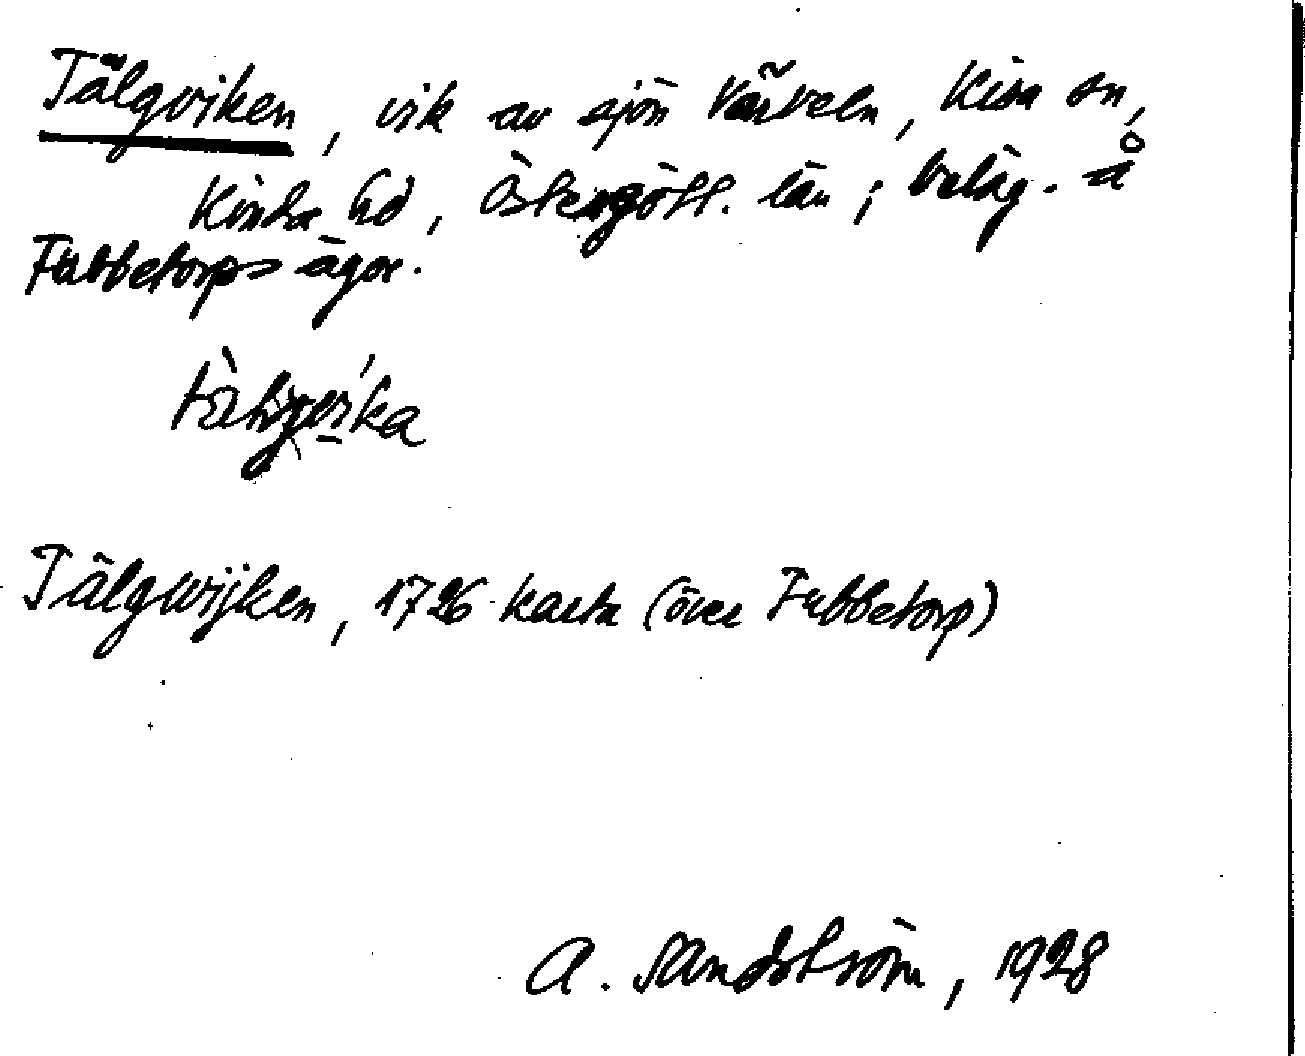 Tälgviken, vik av sjön Värveln, Kisa sn,
Kinda hd, Östergötl. län; beläg. å
Fubbetorps ägor.
Tälgwijken, 1726 karta (över Fubbetorp)
A. Sandström, 1928